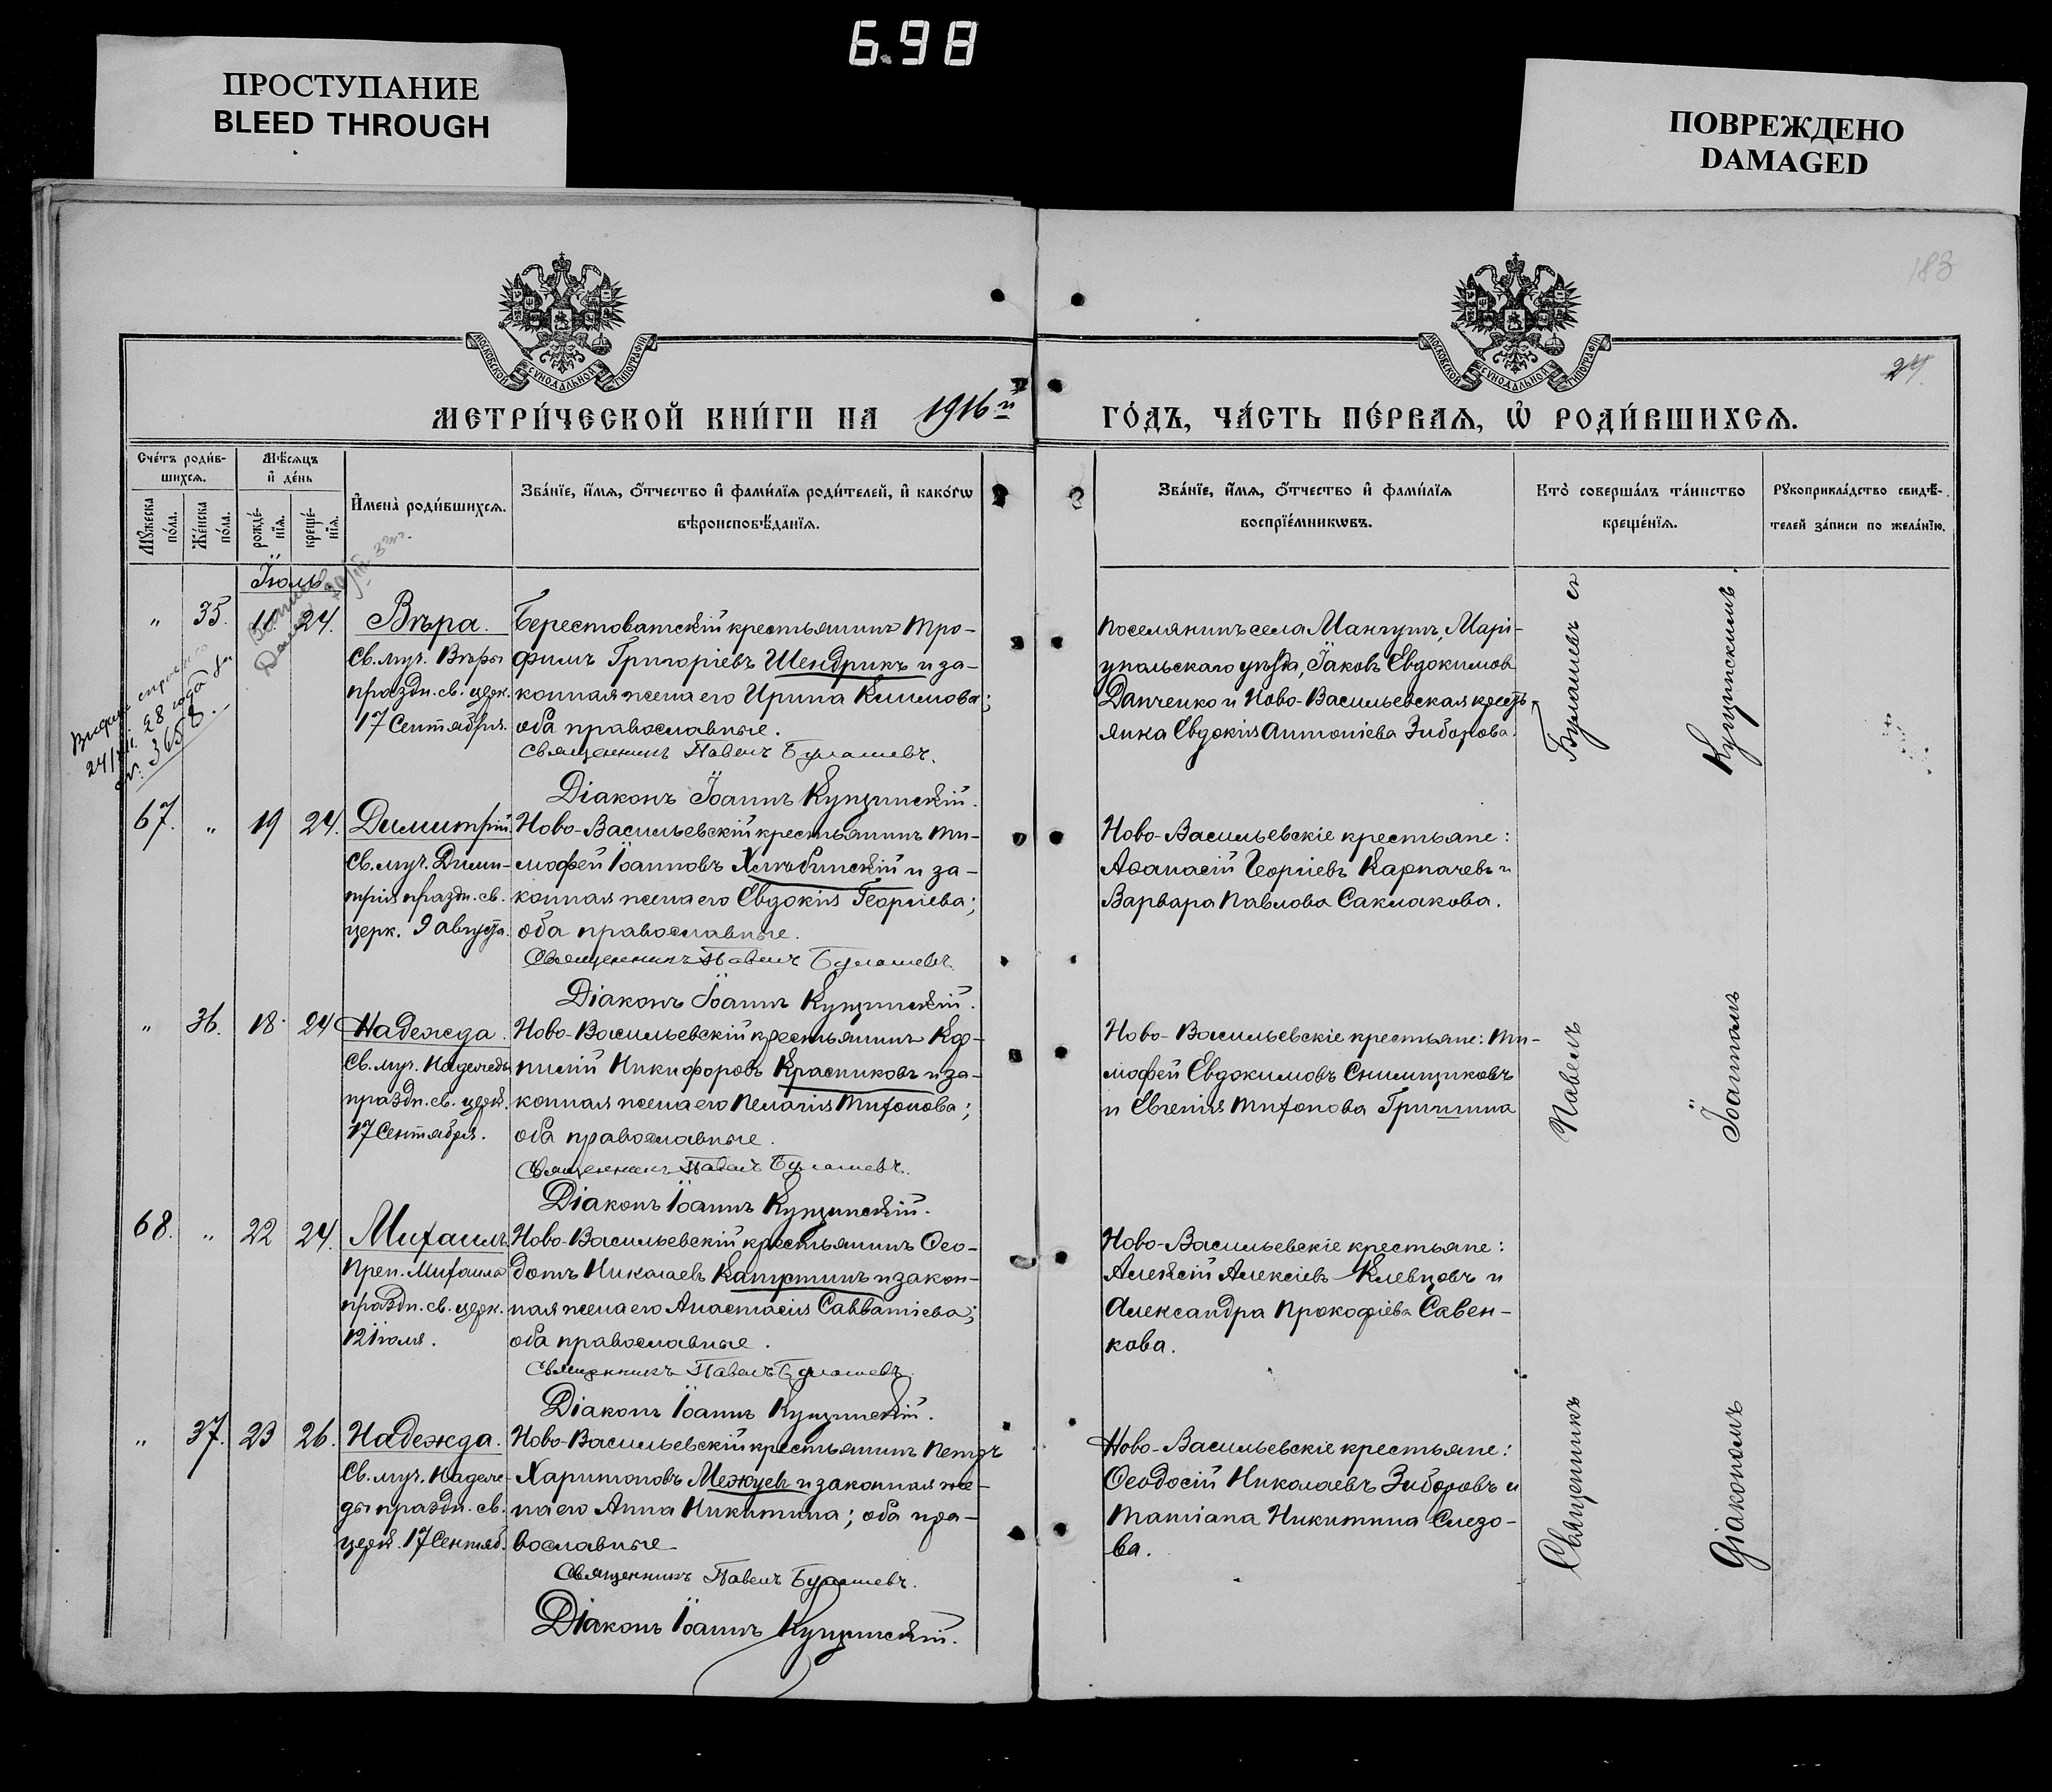 6.98
ПРОСТУПАНИЕ
BLEED THROUGH
ПОВРЕЖДЕНО
DAMAGED
183
24
МОСКОВСКОЙ СУНОДАЛЬНОЙ ТИПОГРАФІИ
МОСКОВСКОЙ СУНОДАЛЬНОЙ ТИПОГРАФІИ
МЕТРИ́ЧЕСКОЙ КНИ́ГИ НА 1916й
ГО́ДЪ, ЧА́СТЬ ПЕ́РВАѦ, Ѡ҆ РОДИ́ВШИХСѦ.
Сче́тъ роди́в-
шихсѧ.
Мꙋжеска по́ла.
Же́нска по́ла.
Мѣ́сѧцъ
и҆ де́нь
рожде́-
нїѧ.
креще́-
нїѧ.
И҆мена̀ роди́вшихсѧ.
Зва́нїе, и҆́мѧ, ѻ҆́тчество и҆ фами́лїѧ роди́телей, и҆ како́гѡ
вѣроисповѣ́данїѧ.
Зва́нїе, и҆́мѧ, ѻ҆́тчество и҆ фами́лїѧ
воспрїе́мникѡвъ.
Кто̀ соверша́лъ та́инство
креще́нїѧ.
Рꙋкоприкла́дство свидѣ́-
телей за́писи по жела́нїю.
Іюль.
" 35. 11. 24. Вѣра.
Св. муч. Вѣры
праздн. св. церк.
17 Сентября.
Берестоватскій крестьянинъ Тро-
фимъ Григоріевъ Шендрикъ и за-
конная жена его Ирина Климова;
оба православные.
Священникъ Павелъ Булашевъ.
Діаконъ Іоаннъ Купчинскій.
Поселянинъ села Мангушъ, Марі-
упольскаго уѣзда, Іаковъ Евдокимовъ
Данченко и Ново-Васильевская кресть-
янка Евдокія Антоніева Зиборова.
24/VII. 28 года
№. 3658.
67. " 19 24. Димитрій.
Св. муч. Дими-
трія праздн. св.
церк. 9 августа.
Ново-Васильевскій крестьянинъ Ти-
мофей Іоанновъ Хлѣбинскій и за-
конная жена его Евдокія Георгіева;
оба православные.
Священникъ Павелъ Булашевъ.
Діаконъ Іоаннъ Купчинскій.
Ново-Васильевскіе крестьяне:
Аѳанасій Георгіевъ Карпачевъ и
Варвара Павлова Саклакова.
" 36. 18. 24 Надежда.
Св. муч. Надежды
праздн. св. церк.
17 Сентября.
Ново-Васильевскій крестьянинъ Кор-
нилій Никифоровъ Красниковъ и за-
конная жена его Пелагія Тихонова;
оба православные.
Священникъ Павелъ Булашевъ.
Діаконъ Іоаннъ Купчинскій.
Ново-Васильевскіе крестьяне: Ти-
мофей Евдокимовъ Снимщиковъ
и Евгенія Тихонова Гришина
68. " 22 24. Михаилъ.
Преп. Михаила
праздн. св. церк.
12 Іюля.
Ново-Васильевскій крестьянинъ Ѳео-
дотъ Николаевъ Капустинъ и закон-
ная жена его Анастасія Савватіева;
оба православные.
Священникъ Павелъ Булашевъ.
Діаконъ Іоаннъ Купчинскій.
Ново-Васильевскіе крестьяне:
Алексій Алексіевъ Клевцовъ и
Александра Прокофіева Савен-
кова.
" 37. 23 26. Надежда.
Св. муч. Надеж-
ды праздн. св.
церк. 17 Сентяб.
Ново-Васильевскій крестьянинъ Петръ
Харитоновъ Межуевъ и законная же-
на его Анна Никитина; оба пра-
вославные
Священникъ Павелъ Булашевъ.
Діаконъ Іоаннъ Купчинскій.
Ново-Васильевскіе крестьяне:
Ѳеодосій Николаевъ Зиборовъ и
Татіана Никитина Слезо-
ва.
Священникъ Павелъ Булашевъ съ
Діакономъ Іоанномъ Купчинскимъ.